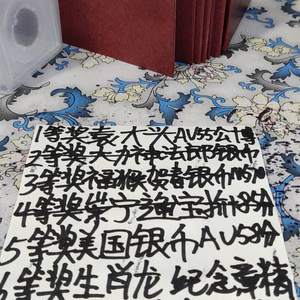 1等奖袁大头AU55公博
2等奖大力神法郎银币
3等奖福猴贺春银币MS70
4等奖崇宁通宝折十85分
5等奖美国银币AU58分
6等奖生肖龙 纪念章精